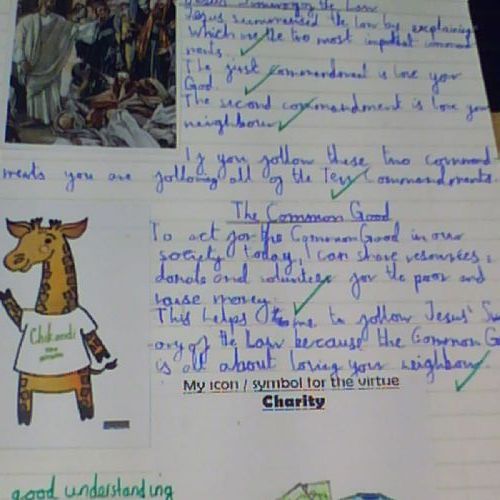 Jesus summary of the Law
Jesus summarised the law by explaining
which are the two most important command
ments.
The first commandment is love your
God.
The second commandment is love your
neighbour.
If you follow these two command
ments you are following all of the Ten Commandments.
The Common Good
To act for the Common Good in our
society today, I can share resources,
donate and volunteer for the poor and
raise money.
This helps me to follow Jesus' Summ
ary of the Law because the Common G
is all about loving your neighbour.
My icon / symbol for the virtue
Charity
good understanding